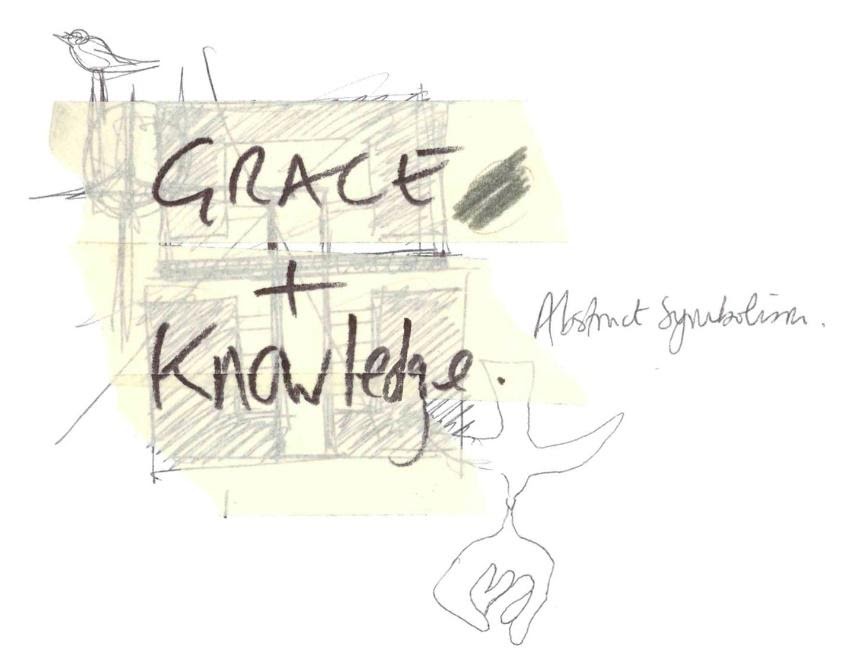 GRACE
+
Knowledge.
Abstract Symbolism.